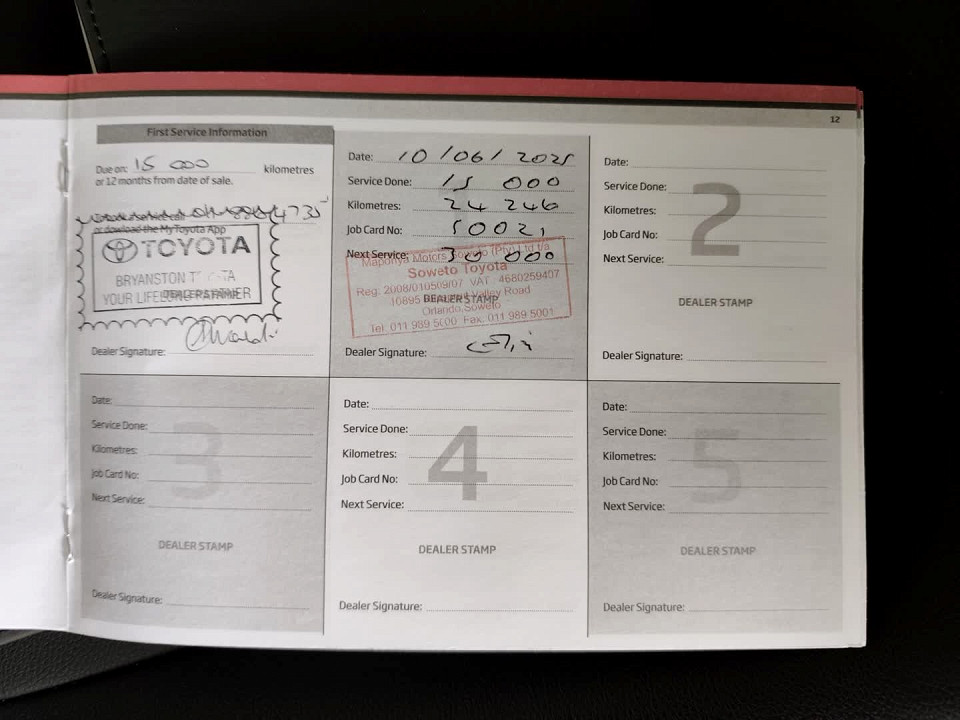 12
First Service Information
Due on: 15 000 kilometres
or 12 months from date of sale.
or dowload the MyToyota App
TOYOTA
BRYANSTON
YOUR LIFELONG PARTNER
DEALER STAMP
Dealer Signature:
Date: 10/06/2025
Service Done: 15 000
Kilometres: 24 246
Job Card No: 50021
Next Service: 30 000
Maponya Motors Soweto (Pty) Ltd t/a
Soweto Toyota
Reg: 2008/010509/07 VAT: 4680259407
10895 Valley Road
DEALER STAMP
Orlando, Soweto
Tel. 011 989 5000 Fax. 011 989 5001
Dealer Signature:
2
Date:
Service Done:
Kilometres:
Job Card No:
Next Service:
DEALER STAMP
Dealer Signature:
3
Date:
Service Done:
Kilometres:
Job Card No:
Next Service:
DEALER STAMP
Dealer Signature:
4
Date:
Service Done:
Kilometres:
Job Card No:
Next Service:
DEALER STAMP
Dealer Signature:
5
Date:
Service Done:
Kilometres:
Job Card No:
Next Service:
DEALER STAMP
Dealer Signature: